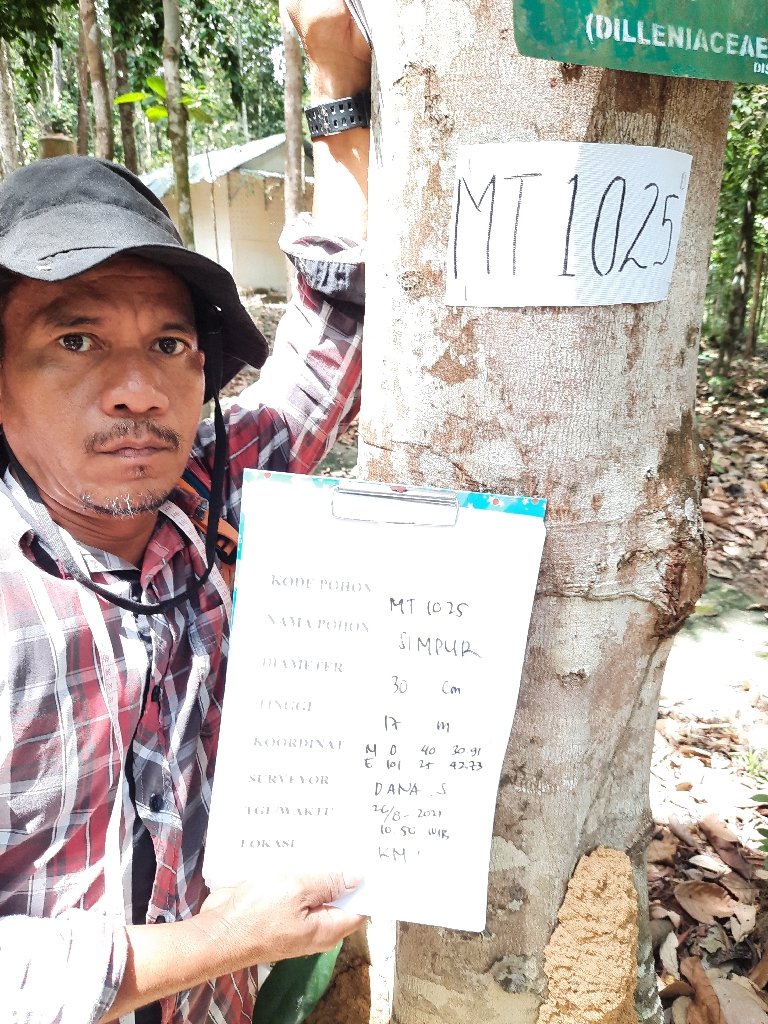 (DILLENIACEAE
DIS
MT 1025
KODE POHON MT 1025
NAMA POHON SIMPUR
DIAMETER 30 cm
TINGGI 17 m
KOORDINAT N 0 40 30.91
E 101 25 42.73
SURVEYOR DANA .S
TGL/WAKTU 26/8-2021
10.50 WIB
LOKASI KM